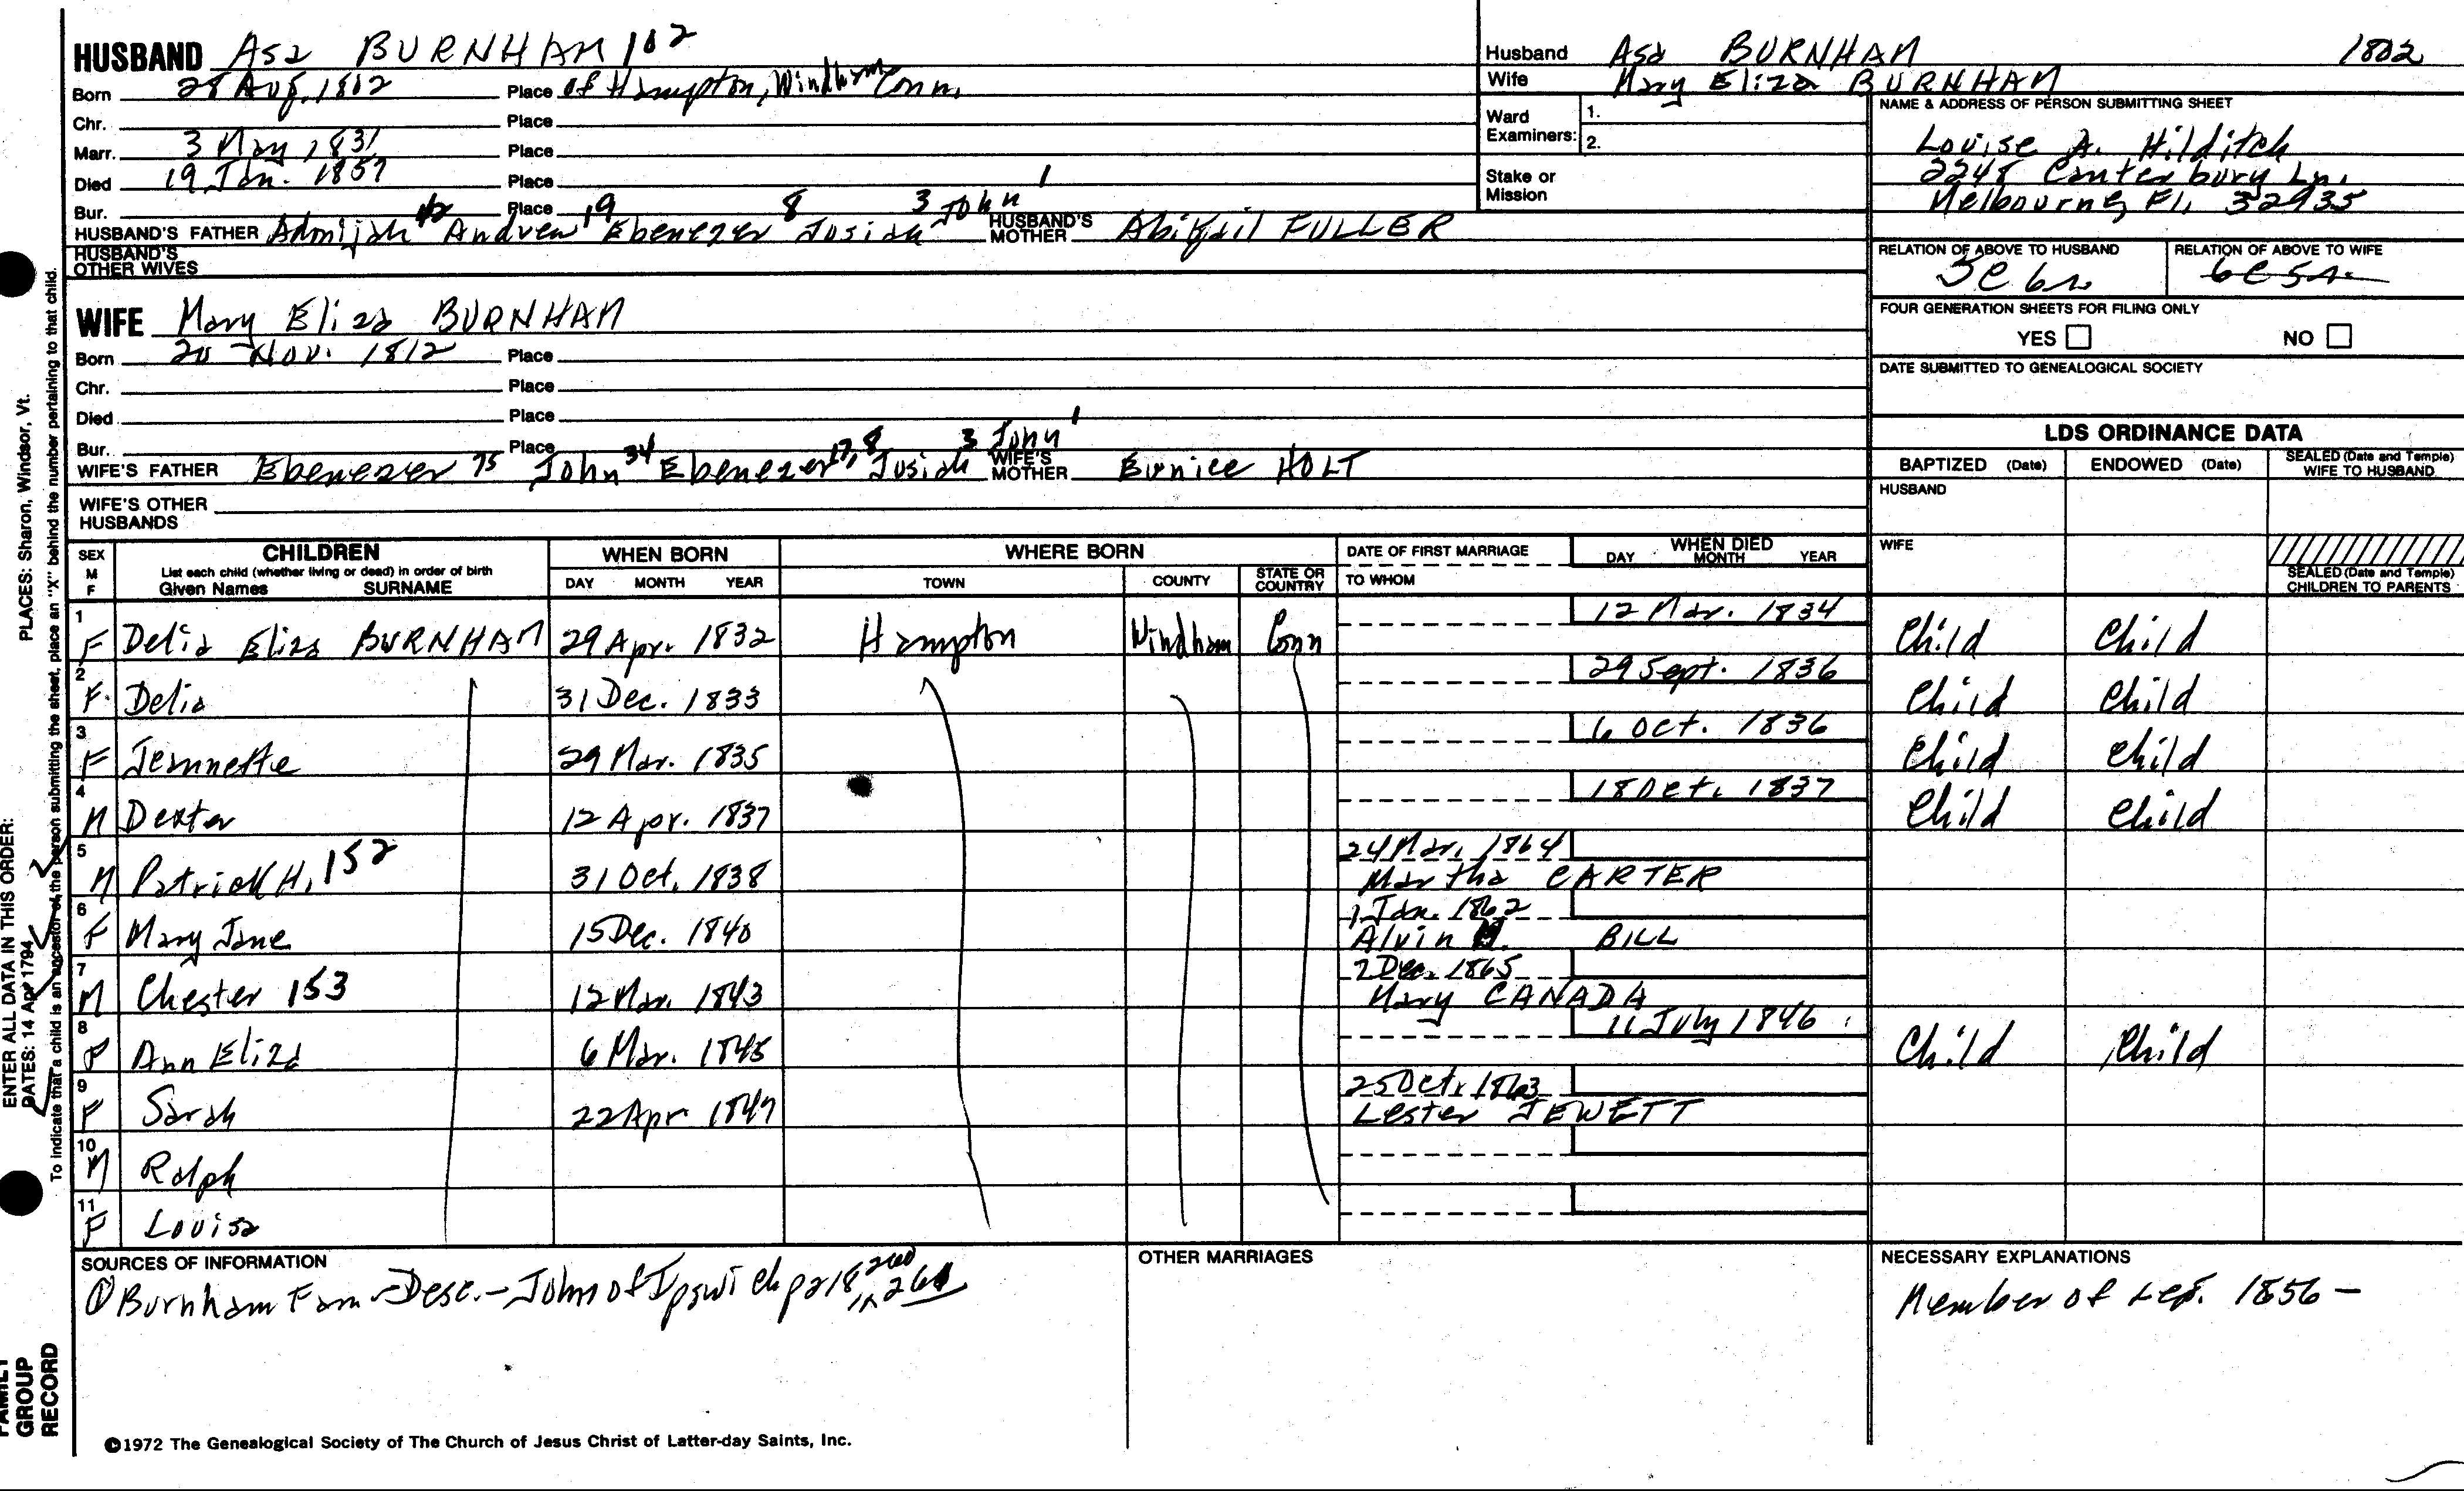 HUSBAND Asa BURNHAM 102
Born 28 Aug. 1802 Place of Hampton, Windham Conn.
Chr. Place
Marr. 3 May 1831 Place
Died 19 Jan. 1857 Place
Bur. Place
HUSBAND'S FATHER Adonijah Andrew 19 Ebenezer 8 Josiah 3 John 1 HUSBAND'S MOTHER Abigail FULLER
HUSBAND'S OTHER WIVES
WIFE Mary Eliza BURNHAM
Born 20 Nov. 1812 Place
Chr. Place
Died Place
Bur. Place
WIFE'S FATHER Ebenezer 75 John 34 Ebenezer 17, 8 Josiah 3 John 1 WIFE'S MOTHER Eunice HOLT
WIFE'S OTHER HUSBANDS
Husband Asa BURNHAM 1802
Wife Mary Eliza BURNHAM
Ward Examiners: 1.
2.
Stake or Mission
NAME & ADDRESS OF PERSON SUBMITTING SHEET
Louise A. Hilditch
2248 Canterbury Ln.
Melbourne, Fl, 32935
RELATION OF ABOVE TO HUSBAND RELATION OF ABOVE TO WIFE
5C 6r 6C5r
FOUR GENERATION SHEETS FOR FILING ONLY
YES NO
DATE SUBMITTED TO GENEALOGICAL SOCIETY
LDS ORDINANCE DATA
BAPTIZED (Date) ENDOWED (Date) SEALED (Date and Temple) WIFE TO HUSBAND
HUSBAND
WIFE
SEALED (Date and Temple) CHILDREN TO PARENTS
SEX M F CHILDREN List each child (whether living or dead) in order of birth Given Names SURNAME WHEN BORN DAY MONTH YEAR WHERE BORN TOWN COUNTY STATE OR COUNTRY DATE OF FIRST MARRIAGE TO WHOM WHEN DIED DAY MONTH YEAR
1 F Delia Eliza BURNHAM 29 Apr. 1832 Hampton Windham Conn 12 Mar. 1834 Child Child
2 F. Delia 31 Dec. 1833 29 Sept. 1836 Child Child
3 F Jeannette 29 Mar. 1835 6 Oct. 1836 Child Child
4 M Dexter 12 Apr. 1837 18 Oct. 1837 Child Child
5 M Patrick H. 152 31 Oct. 1838 24 Mar. 1864 Martha CARTER
6 F Mary Jane 15 Dec. 1840 1 Jan. 1862 Alvin BILL
7 M Chester 153 12 Mar. 1843 2 Dec. 1865 Mary CANADA
8 F Ann Eliza 6 Mar. 1845 11 July 1846 Child Child
9 F Sarah 22 Apr 1847 25 Oct. 1863 Lester JEWETT
10 M Ralph
11 F Louisa
SOURCES OF INFORMATION
① Burnham Fam - Desc. - John of Ipswich p 218 in 260 261
OTHER MARRIAGES
NECESSARY EXPLANATIONS
Member of Leg. 1856 -
©1972 The Genealogical Society of The Church of Jesus Christ of Latter-day Saints, Inc.
FAMILY GROUP RECORD
ENTER ALL DATA IN THIS ORDER:
DATES: 14 Apr 1794
PLACES: Sharon, Windsor, Vt.
To indicate that a child is an ancestor of the person submitting the sheet, place an "X" behind the number pertaining to that child.